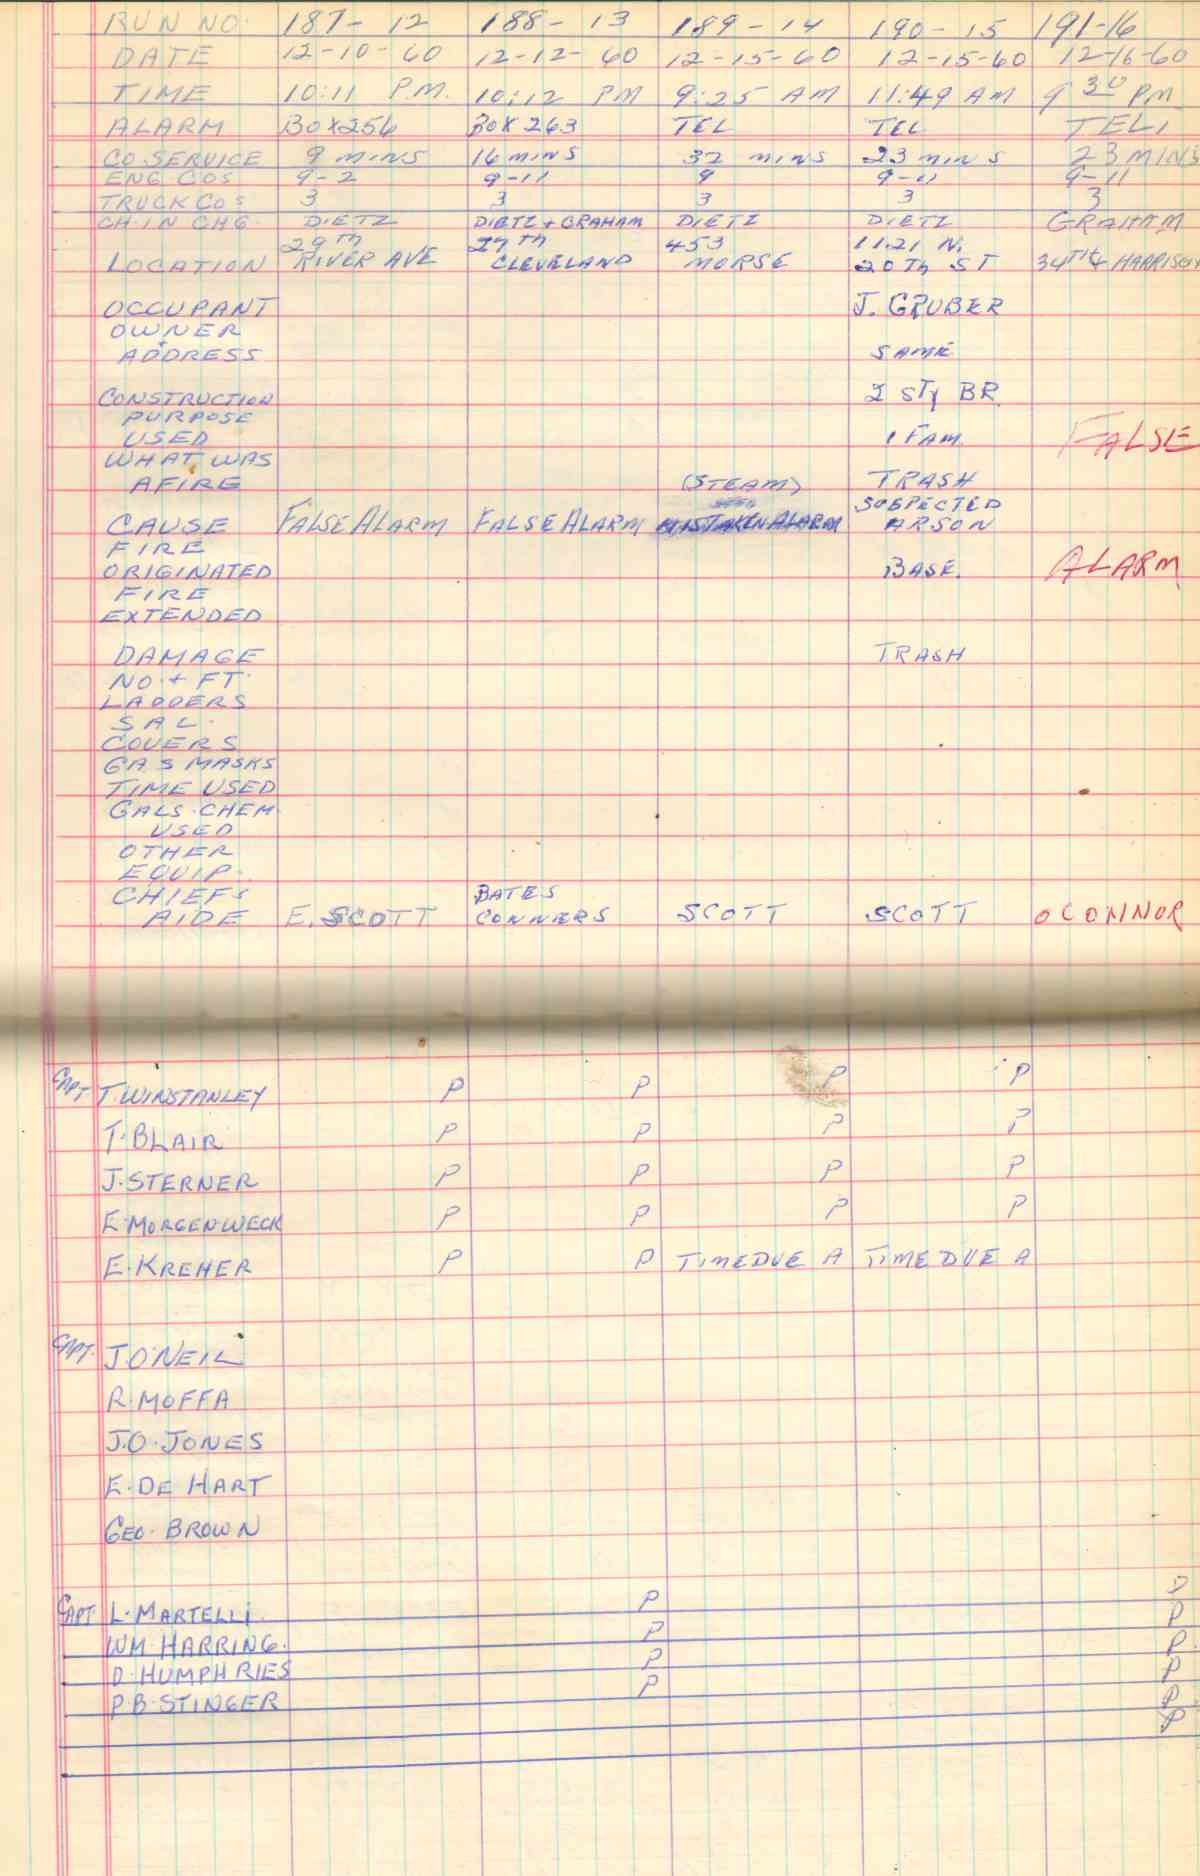 RUN NO. 187-12 188-13 189-14 190-15 191-16
DATE 12-10-60 12-12-60 12-15-60 12-15-60 12-16-60
TIME 10:11 P.M. 10:12 PM 9:25 AM 11:49 AM 9 30 PM
ALARM BOX 256 BOX 263 TEL TEL TEL,
CO. SERVICE 9 MINS 16 MINS 32 MINS 23 MINS 23 MINS
ENG COS 9-2 9-11 9 9-11 9-11
TRUCK COS 3 3 3 3 3
CH. IN CHG. DIETZ DIETZ + GRAHAM DIETZ DIETZ GRAHAM
29TH 27TH 453 1121 N.
LOCATION RIVER AVE CLEVELAND MORSE 20TH ST 34TH + HARRISON
OCCUPANT J. GRUBER
OWNER
+
ADDRESS SAME
CONSTRUCTION 2 STY BR.
PURPOSE
USED 1 FAM. FALSE
WHAT WAS
AFIRE (STEAM) TRASH
SUSPECTED
CAUSE FALSE ALARM FALSE ALARM MISTAKEN ALARM ARSON
FIRE
ORIGINATED BASE. ALARM
FIRE
EXTENDED
DAMAGE TRASH
NO. + FT.
LADDERS
SAL.
COVERS
GAS MASKS
TIME USED
GALS. CHEM.
USED
OTHER
EQUIP.
CHIEFS BATES
AIDE E. SCOTT CONNERS SCOTT SCOTT OCONNOR
CAPT. T. WINSTANLEY P P P P
T. BLAIR P P P P
J. STERNER P P P P
E. MORGENWECK P P P P
E. KREHER P P TIME DUE A TIME DUE A
CAPT. J. O'NEIL
R. MOFFA
J.O. JONES
E. DE HART
GEO. BROWN
CAPT. L. MARTELLI. P P
WM HARRING. P P
D. HUMPHRIES P P
P.B. STINGER P P
P
P